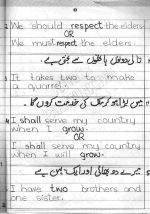 We should respect the elders.
OR
We must respect the elders.
تالی دونوں ہاتھوں سے بجتی ہے
It takes two to make
a quarrel.
میں بڑا ہو کر ملک کی خدمت کروں گا۔
I shall serve my country
when I grow.
OR
I shall serve my country
when I will grow.
میرے دو بھائی اور ایک بہن ہے
I have two brothers and
one sister.